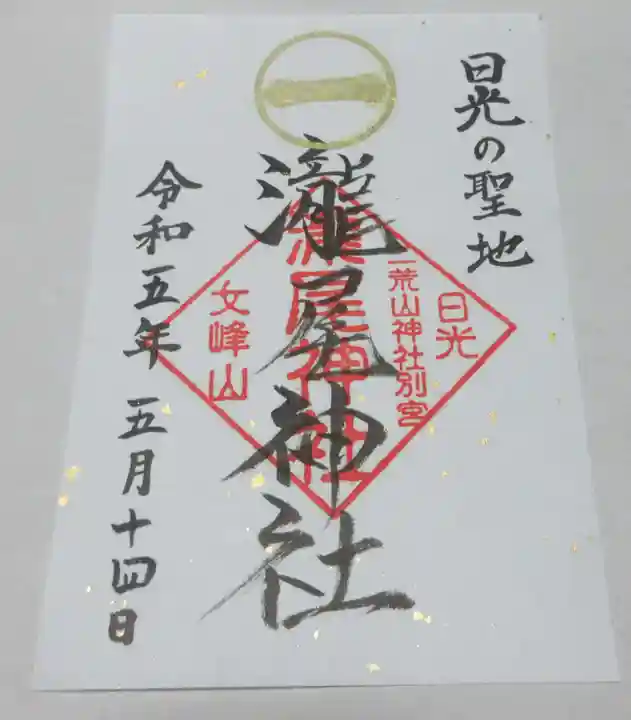 日光の聖地
一
瀧尾神社
日光
二荒山神社別宮
瀧尾神社
女峰山
令和五年 五月十四日